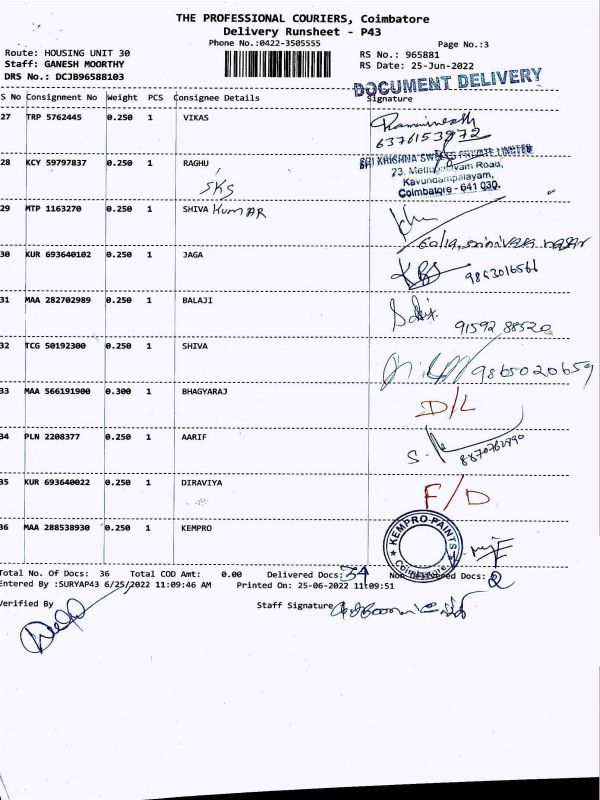 THE PROFESSIONAL COURIERS, Coimbatore
Delivery Runsheet - P43
Phone No.:0422-3505555
Page No.:3
Route: HOUSING UNIT 30
RS No.: 965881
Staff: GANESH MOORTHY
RS Date: 25-Jun-2022
DRS No.: DCJB96588103
DOCUMENT DELIVERY
S No Consignment No Weight PCS Consignee Details Signature
27 TRP 5762445 0.250 1 VIKAS
6376153972
28 KCY 59797837 0.250 1 RAGHU
SKS
SRI KRISHNA SWEETS PRIVATE LIMITED
23, Mettupalayam Road,
Kavundampalayam,
Coimbatore - 641 030.
29 MTP 1163270 0.250 1 SHIVA KumAR
30 KUR 693640102 0.250 1 JAGA
9863016566
31 MAA 282702989 0.250 1 BALAJI
91592 88520
32 TCG 50192300 0.250 1 SHIVA
9865020659
33 MAA 566191900 0.300 1 BHAGYARAJ
D/L
34 PLN 2208377 0.250 1 AARIF
35 KUR 693640022 0.250 1 DIRAVIYA
F/D
36 MAA 288538930 0.250 1 KEMPRO
KEMPRO-PAINTS
Coimbatore
Total No. Of Docs: 36 Total COD Amt: 0.00 Delivered Docs: 34 Non-Delivered Docs: 2
Entered By :SURYAP43 6/25/2022 11:09:46 AM Printed On: 25-06-2022 11:09:51
Verified By
Staff Signature